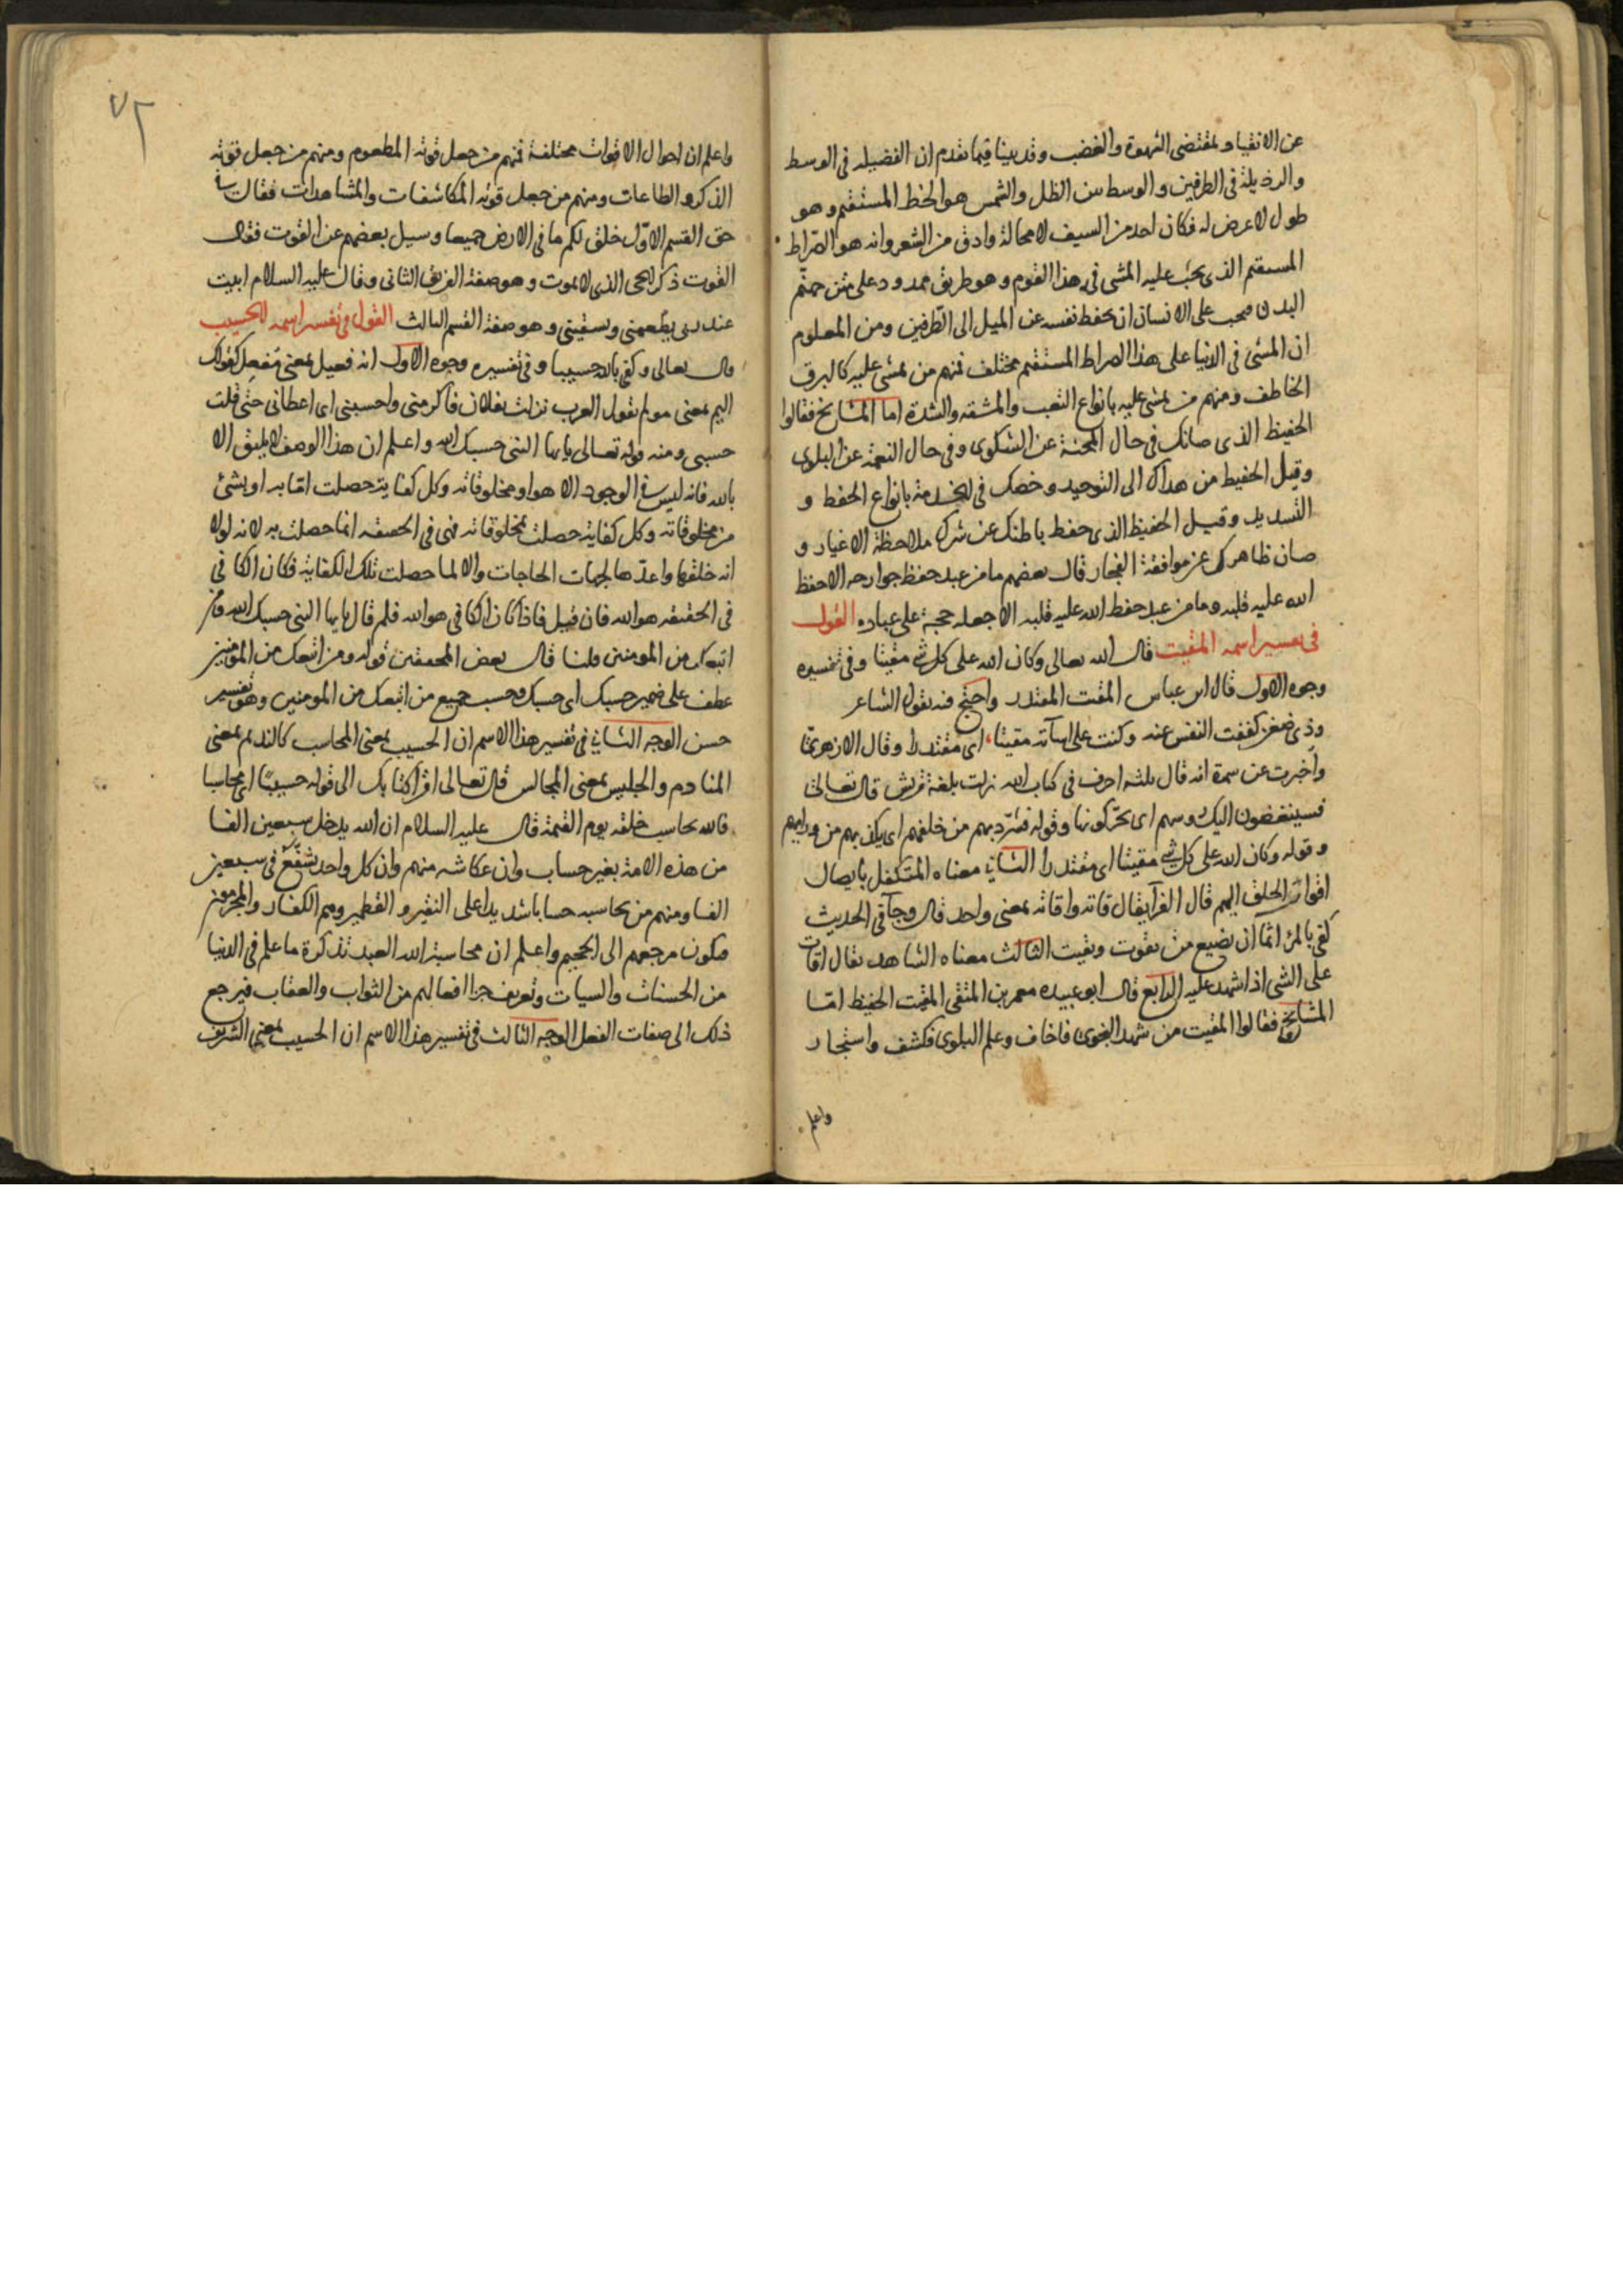 عن الانقياد لمقتضى الشهوة والغضب وقد بينا فيما تقدم ان الفضيله فى الوسط
والرذيلة فى الطرفين والوسط بين الظل والشمس هو الخط المستقيم وهو
طول لا عرض له فكان احد من السيف لا محالة وادق من الشعر وانه هو الصراط
المستقيم الذى يجب عليه المشى فى هذا القوم وهو طريق ممدود على متن جهنم
البدن فيجب على الانسان ان يحفظ نفسه عن الميل الى الطرفين ومن المعلوم
ان المشى فى الدنيا على هذا الصراط المستقيم مختلف فمنهم من يمشى عليه كالبرق
الخاطف ومنهم من يمشى عليه بانواع التعب والمشقه والشدة اما المشايخ فقالوا
الحفيظ الذى صانك فى حال المحنة عن الشكوى وفى حال النعمة عن البلوى
وقيل الحفيظ من هداك الى التوحيد وخصك فى الخدمة بانواع الحفظ و
التسديد وقيل الحفيظ الذى حفظ باطنك عن شرك ملاحظة الاغيار و
صان ظاهرك عن موافقة الفجار قال بعضهم ما من عبد حفظ جوارحه الا حفظ
الله عليه قلبه وما من عبد حفظ الله عليه قلبه الا جعله حجة على عباده القول
فى تفسير اسمه المقيت قال الله تعالى وكان الله على كل شئ مقيتا وفى تفسيره
وجوه الاول قال ابن عباس المقيت المقتدر واحتج فيه بقول الشاعر
وذى ضغن كففت النفس عنه وكنت على اسآته مقيتا، اى مقتدرا وقال الازهرى
وأخبرت عن سمرة انه قال ثلثه احرف فى كتاب الله نزلت بلغة قريش قال تعالى
فسينغضون اليك روسهم اى يحركونها وقوله فشرد بهم من خلفهم اى نكل بهم من ورايهم
وقوله وكان الله على كل شئ مقيتا اى مقتدرا الثانى معناه المتكفل بايصال
اقوات الخلق اليهم قال الفرآ يقال قاته واقاته بمعنى واحد قال وجآ فى الحديث
كفى بالمرء اثما ان يضيع من يقوت ويقيت الثالث معناه الشاهد يقال اقات
على الشى اذا شهد عليه الرابع قال ابو عبيده معمر بن المثنى المقيت الحفيظ امّا
المشايخ فقالوا المقيت من شهد النجوى فاخاف وعلم البلوى فكشف واستجار
واعلم
٧٢
واعلم ان احوال الاقوات مختلفة فمنهم من جعل قوته المطعوم ومنهم من جعل قوته
الذكر والطاعات ومنهم من جعل قوته المكاشفات والمشاهدات فقال فى
حق القسم الاوّل خلق لكم ما فى الارض جميعا وسيل بعضهم عن القوت فقال
القوت ذكر الحى الذى لا يموت وهو صفة الفريق الثانى وقال عليه السلام ابيت
عند ربى يطعمنى ويسقينى وهو صفة القسم الثالث القول فى تفسير اسمه الحسيب
قال تعالى وكفى بالله حسيبا وفى تفسيره وجوه الاول انه فعيل بمعنى مُفعِل كقولك
اليم بمعنى مولم تقول العرب نزلت بفلان فاكرمنى واحسبنى اى اعطانى حتى قلت
حسبى ومنه قوله تعالى يايها النبى حسبك الله واعلم ان هذا الوصف لا يليق الا
بالله فانه ليس فى الوجود الا هو او مخلوقاته وكل كفاية حصلت امّا به او بشئ
من مخلوقاته وكل كفاية حصلت بمخلوقاته فهى فى الحقيقه انما حصلت به لانه لولا
انه خلقها واعدّها لجهات الحاجات والا لما حصلت تلك الكفاية فكان الكافى
فى الحقيقه هو الله فان قيل فاذا كان الكافى هو الله فلم قال يايها النبى حسبك الله ومن
اتبعك من المومنين قلنا قال بعض المحققين قوله ومن اتبعك من المؤمنين
عطف على ضمير حسبك اى حسبك وحسب جميع من اتبعك من المومنين وهو تفسير
حسن الوجه الثانى فى تفسير هذا الاسم ان الحسيب بمعنى المحاسب كالنديم بمعنى
المنادم والجليس بمعنى المجالس قال تعالى اقرأ كتابك الى قوله حسيبًا اى محاسبا
فالله يحاسب خلقه يوم القيمة قال عليه السلام ان الله يدخل سبعين الفا
من هذه الامة بغير حساب وان عكاشه منهم وان كل واحد يشفّع فى سبعين
الفا ومنهم من يحاسبه حسابا شديدا على النقير والقطمير وهم الكفار والمجرمون
فيكون مرجعهم الى الجحيم واعلم ان محاسبة الله العبد تذكرة ما علم فى الدنيا
من الحسنات والسيات وتعريف جزا افعالهم من الثواب والعقاب فيرجع
ذلك الى صفات الفعل الوجه الثالث فى تفسير هذا الاسم ان الحسيب بمعنى الشريف